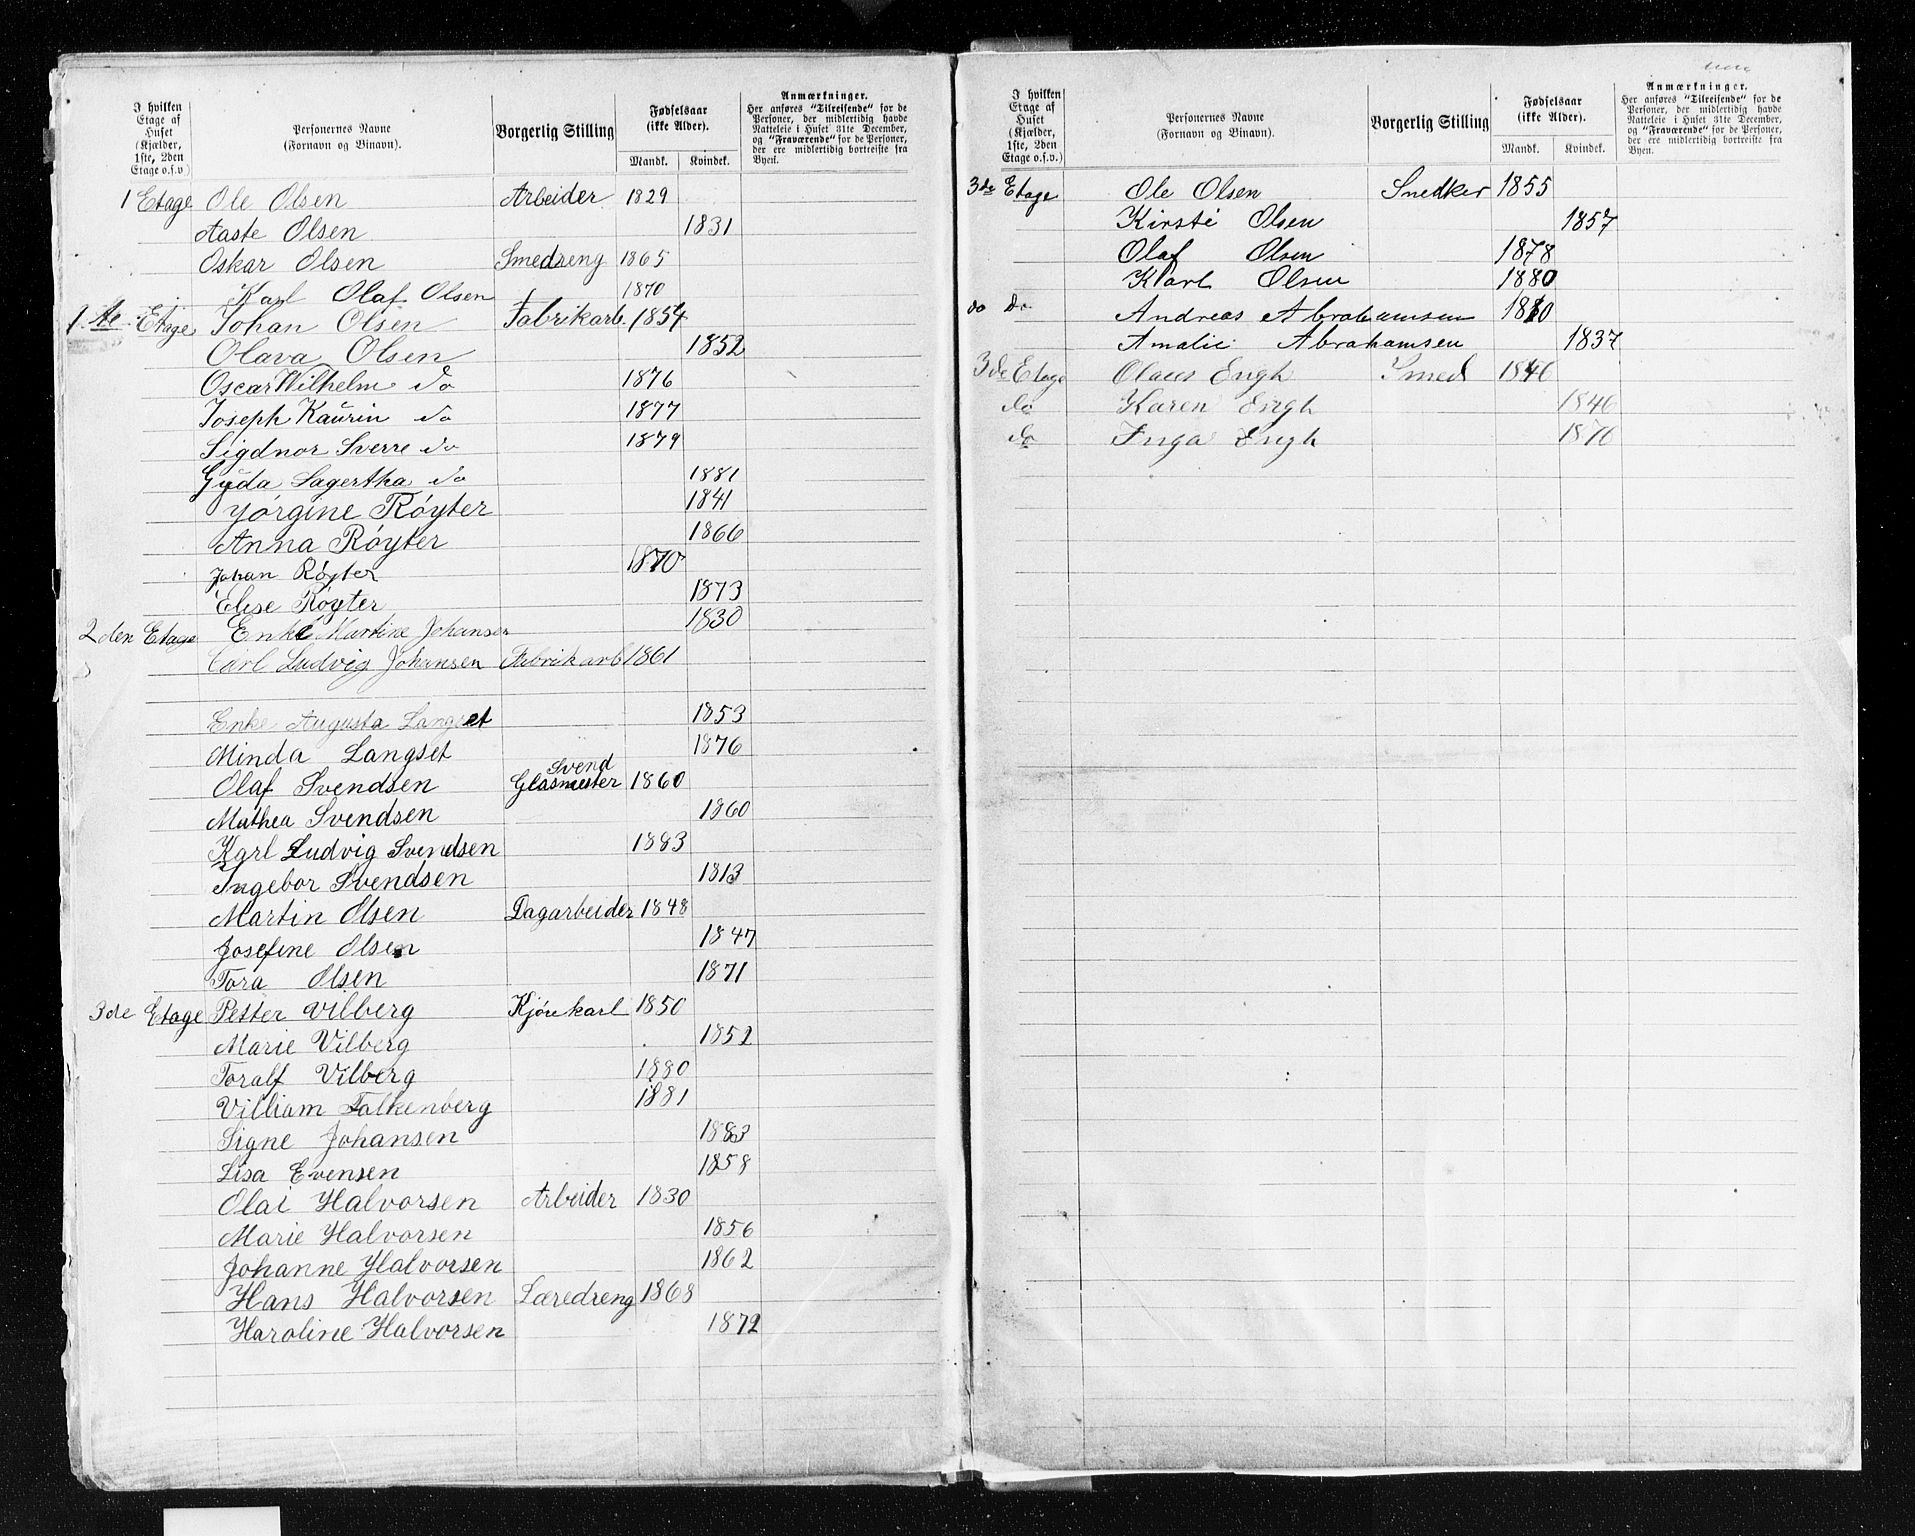 I hvilken Etage af Huset (Kjælder, 1ste, 2den Etage o.s.v.)
Personernes Navne (Fornavn og Binavn).
Borgerlig Stilling
Fødselsaar (ikke Alder).
Mandk. Kvindek.
Anmærkninger.
Her anføres "Tilreisende" for de Personer, der midlertidig havde Natteleie i Huset 31te December, og "Fraværende" for de Personer, der ere midlertidig bortreiste fra Byen.
1 Etage Ole Olsen Arbeider 1829
Aaste Olsen 1831
Oskar Olsen Smedreng 1865
Karl Olaf Olsen 1870
1ste Etage Johan Olsen Fabrikarb. 1854
Olava Olsen 1852
Oscar Wilhelm do 1876
Joseph Kaurin do 1877
Sigdnor Sverre do 1879
Gyda Sagertha do 1881
Jørgine Røyter 1841
Anna Røyter 1866
Johan Røyter 1870
Elise Røyter 1873
2den Etage Enke Martine Johansen 1830
Carl Ludvig Johansen Fabrikarb 1861
Enke Augusta Langset 1853
Minda Langset 1876
Olaf Svendsen Glasmester Svend 1860
Mathea Svendsen 1860
Karl Ludvig Svendsen 1883
Ingebor Svendsen 1813
Martin Olsen Dagarbeider 1848
Josefine Olsen 1847
Tora Olsen 1871
3de Etage Petter Vilberg Kjørekarl 1850
Marie Vilberg 1852
Toralf Vilberg 1880
Villiam Falkenberg 1881
Signe Johansen 1883
Lisa Evensen 1858
Olai Halvorsen Arbeider 1830
Marie Halvorsen 1856
Johanne Halvorsen 1862
Hans Halvorsen Læredreng 1868
Karoline Halvorsen 1872
I hvilken Etage af Huset (Kjælder, 1ste, 2den Etage o.s.v.)
Personernes Navne (Fornavn og Binavn).
Borgerlig Stilling
Fødselsaar (ikke Alder).
Mandk. Kvindek.
Anmærkninger.
Her anføres "Tilreisende" for de Personer, der midlertidig havde Natteleie i Huset 31te December, og "Fraværende" for de Personer, der ere midlertidig bortreiste fra Byen.
3de Etage Ole Olsen Snedker 1855
Kirsti Olsen 1857
Olaf Olsen 1878
Karl Olsen 1880
do do Andreas Abrahamsen
Amalie Abrahamsen 1837
3de Etage Olaus Engh Smed
do Karen Engh 1846
do Inga Engh 1876